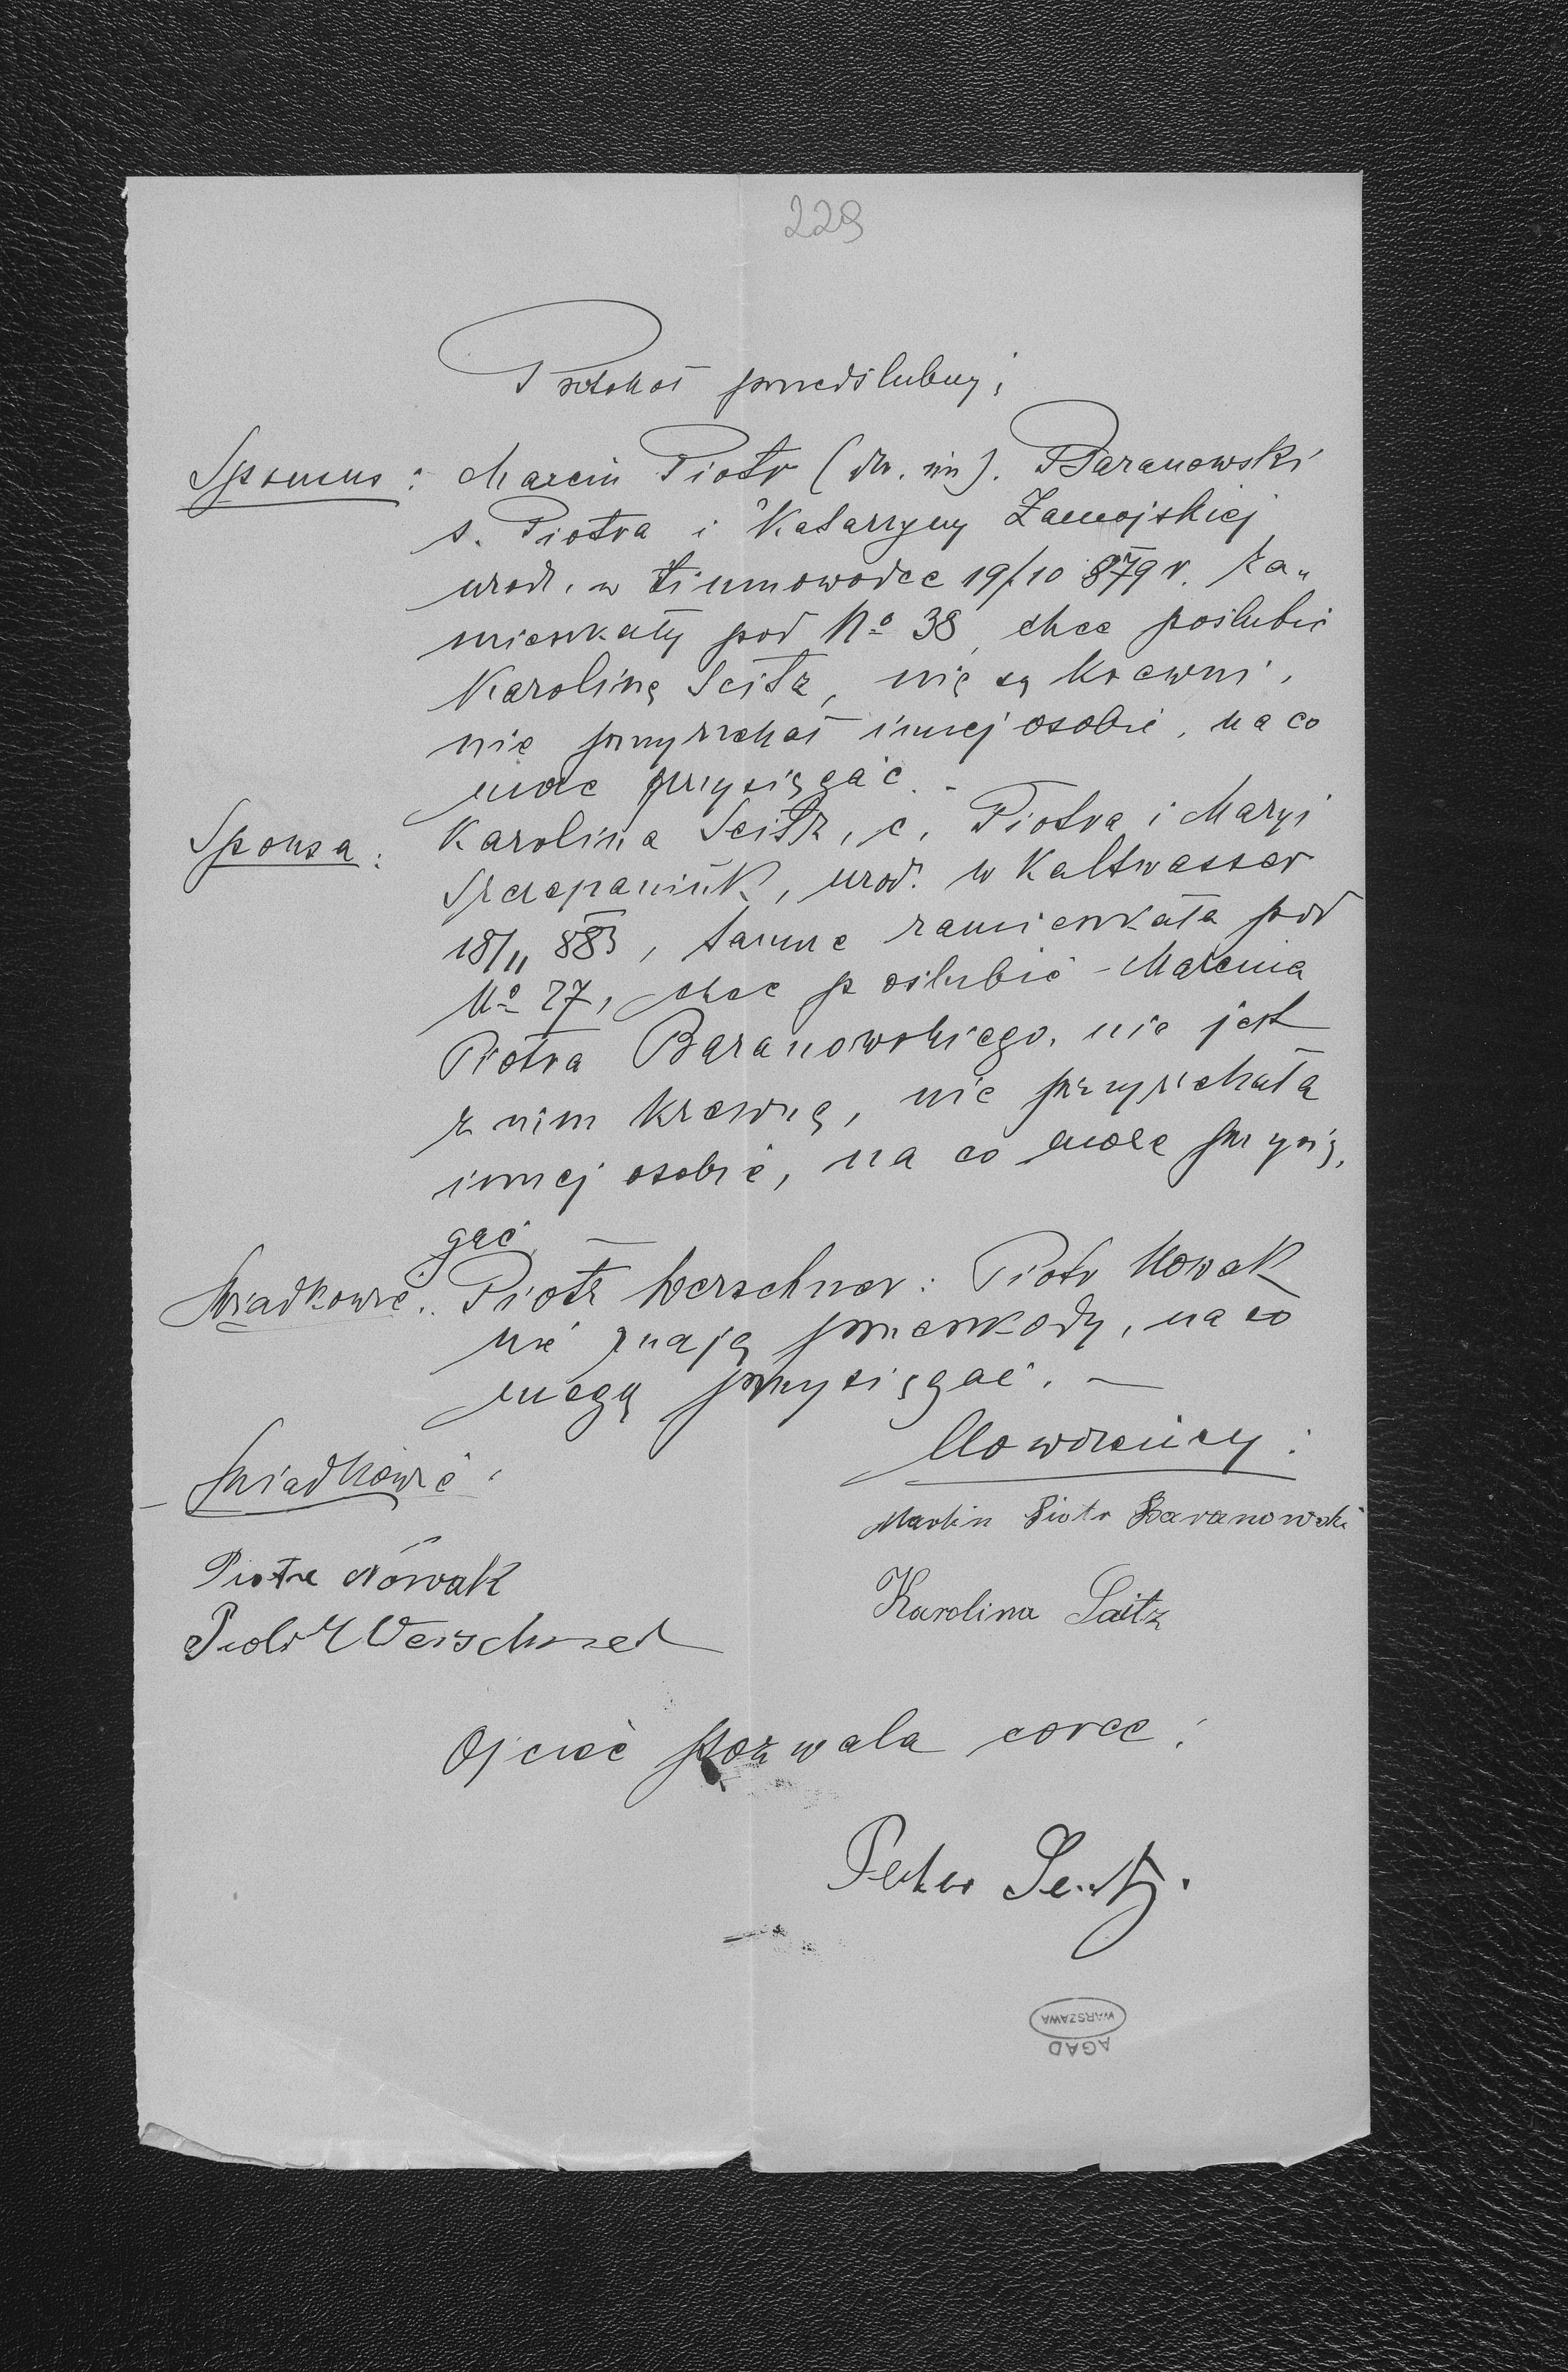 229
Protokół przedślubny:
Sponsus: Marcin Piotr (dw. im). Baranowski
s. Piotra i Katarzyny Zamojskiej
urodz. w Zimnowodce 19/10 879 r. za„
mieszkały pod No 38, chce poślubić
Karolinę Seitz, nie są krewni,
nie przyrzekał innej osobie, na co
może przysięgać. -
Sponsa: Karolina Seitz, c. Piotra i Maryi
Szczepaniuk, urod. w Kaltwasser
18/11 883, tamże zamieszkała pod
No 27, chce poślubić Marcina
Piotra Baranowskiego, nie jest
z nim krewną, nie przyrzekała
innej osobie, na co może przysię„
gać. —
Świadkowie: Piotr Werschner: Piotr Nowak
nie znają przeszkody, na co
mogą przysięgać. —
Nowożeńcy:
Świadkowie:
Martin Piotr Baranowski
Piotr Nowak
Karolina Saitz
Piotr Werschner
Ojciec pozwala córce:
Peter Seitz.
WARSZAWA
AGAD